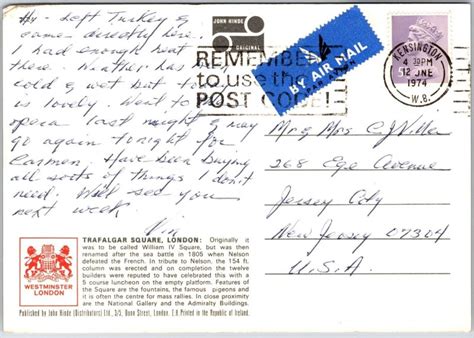 Hy - Left Turkey &
came directly here.
I had enough heat
there. Weather has
cold & wet but to
is lovely. Went to
opera last night & may
go again tonight for
Carmen. Have been buying
all sorts of things I don't
need. Will see you
next week
JOHN HINDE
ORIGINAL
REMEMBER
to use the
POST CODE!
BY AIR MAIL
PAR AVION
KENSINGTON
4 30PM
12 JNE
1974
W.8.
Mr & Mrs C J
268 Ege Avenue
Jersey City
New Jersey 07304
U.S.A.
WESTMINSTER
LONDON
TRAFALGAR SQUARE, LONDON: Originally it
was to be called William IV Square, but was then
renamed after the sea battle in 1805 when Nelson
defeated the French. In tribute to Nelson, the 154 ft.
column was erected and on completion the twelve
builders were reputed to have celebrated this with a
5 course luncheon on the empty platform. Features of
the Square are the fountains, the famous pigeons and
it is often the centre for mass rallies. In close proximity
are the National Gallery and the Admiralty Buildings.
Published by John Hinde (Distributors) Ltd., 3/5, Dunn Street, London. E.8 Printed in the Republic of Ireland.